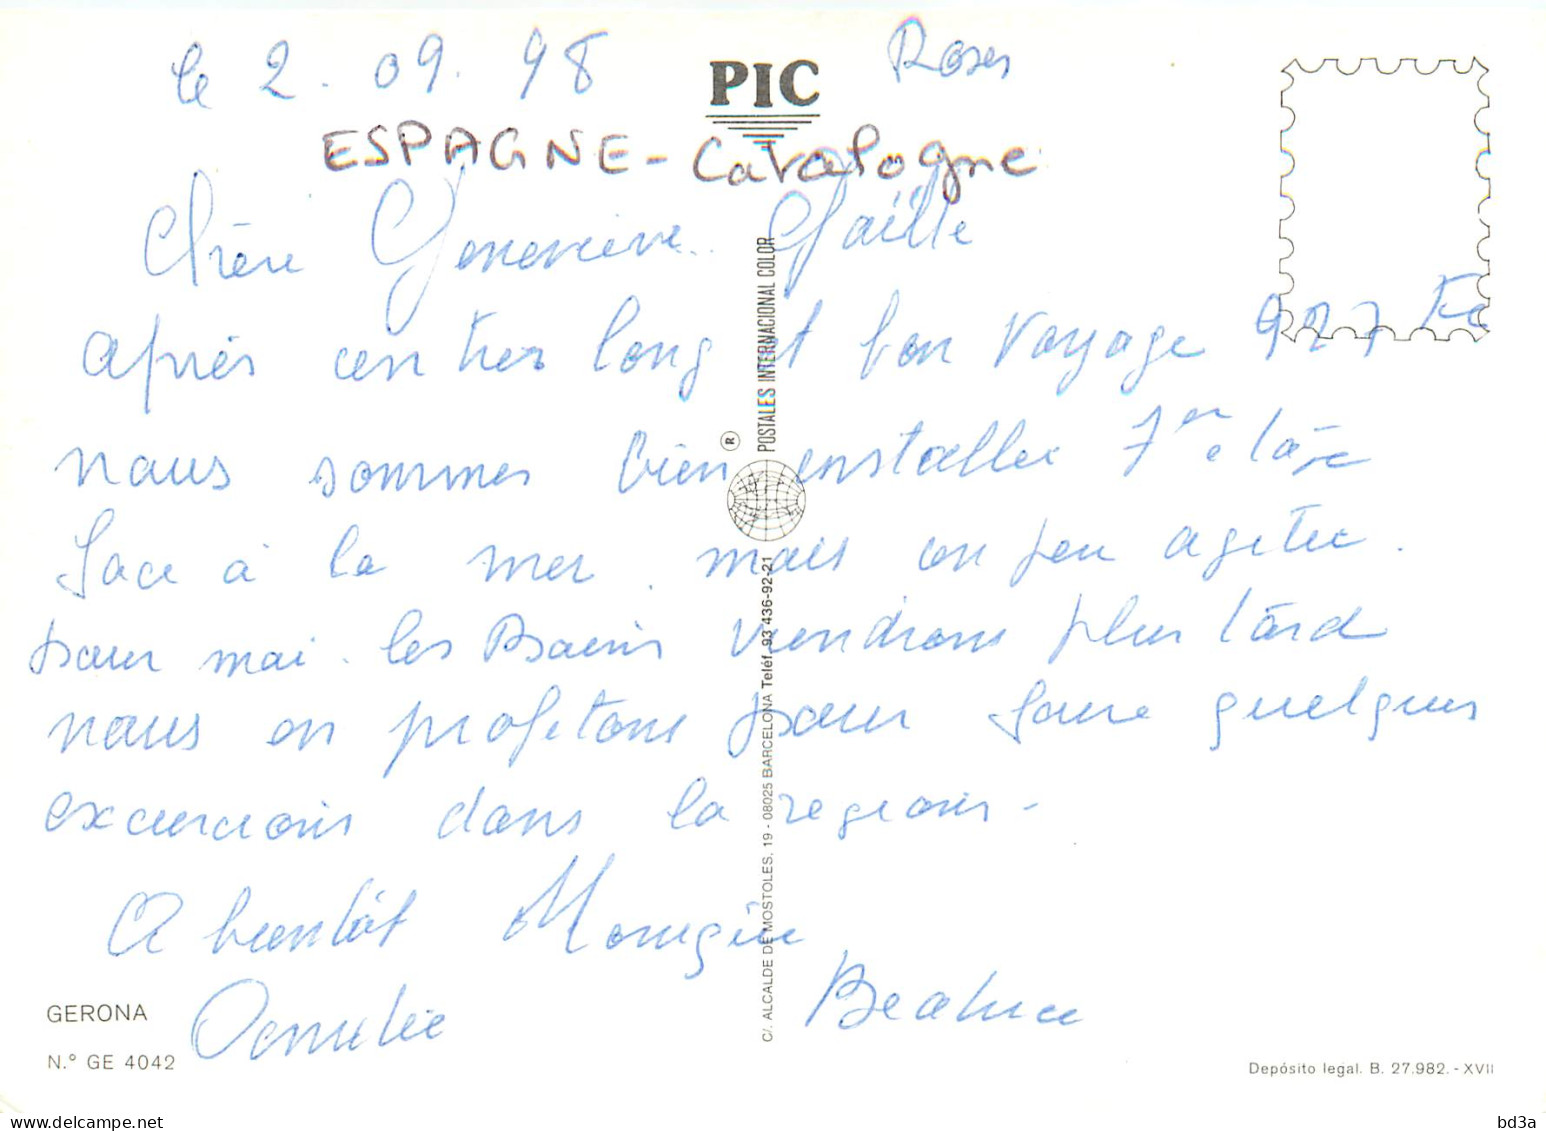 le 2.09.98
Roses
PIC
ESPAGNE - Catalogne
Chère Geneviève. Gaëlle
après un très long et bon voyage 927 Km
nous sommes bien installer
face à la mer. mais un peu agitée.
pour moi. les Bains viendrons plus tard
nous en profitons pour faire quelques
excurcions dans la regions-
A bientôt
Beatrice
POSTALES INTERNACIONAL COLOR
®
C/. ALCALDE DE MOSTOLES, 19 - 08025 BARCELONA Teléf. 93 436-92-21
GERONA
N.° GE 4042
Depósito legal. B. 27.982. - XVII
bd3a